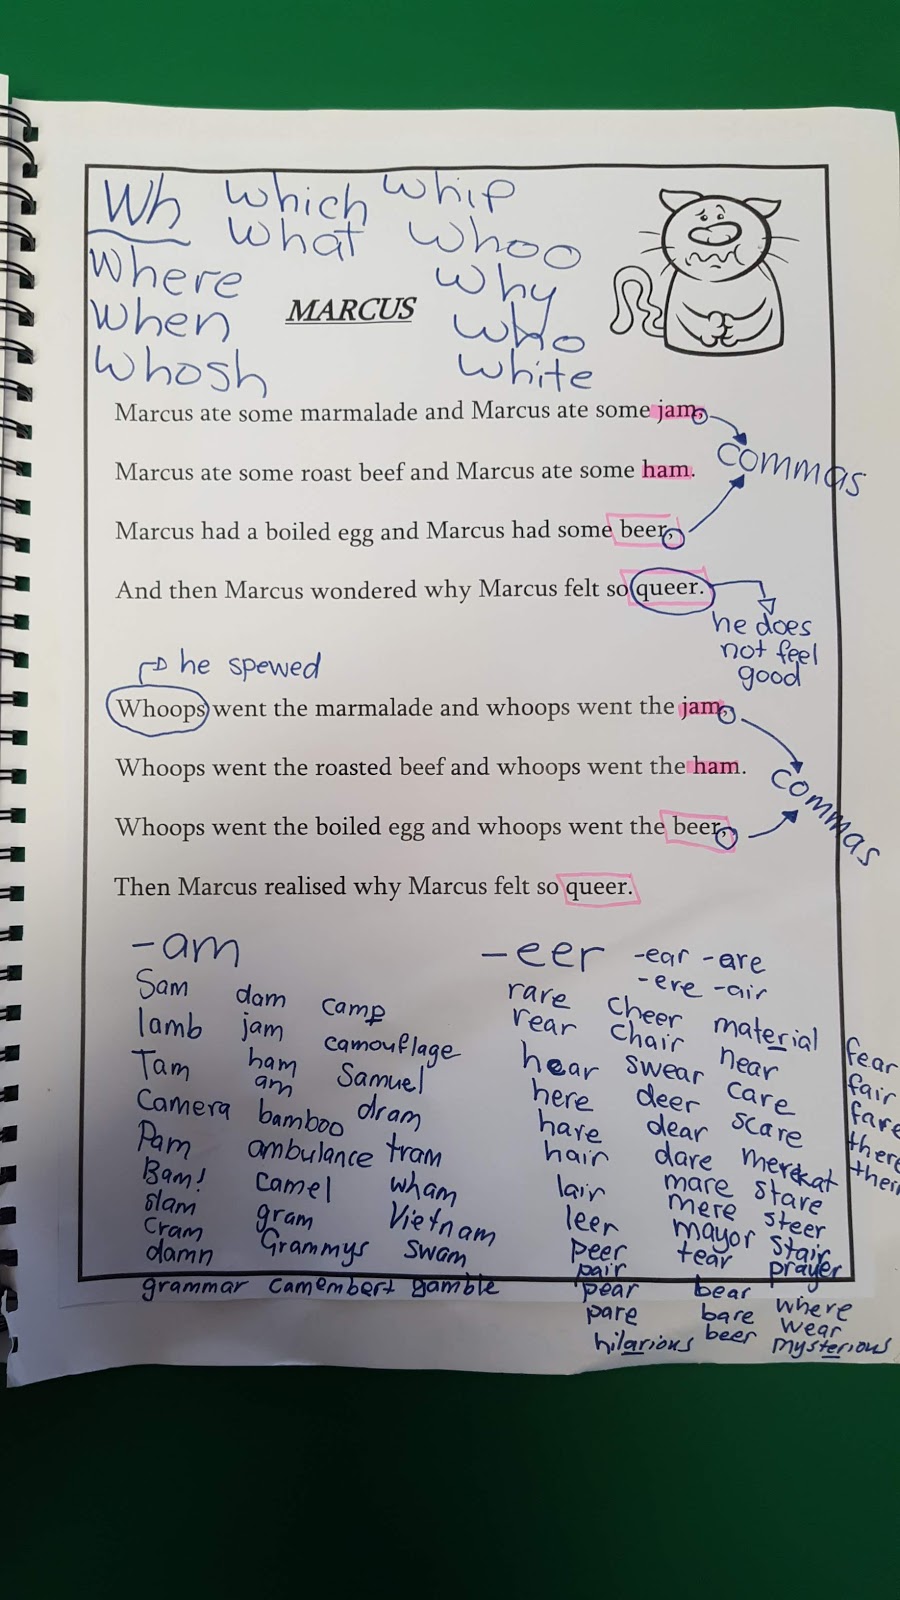 Wh which whip
What Whoo
Where Why
When Who
Whosh White
MARCUS
Marcus ate some marmalade and Marcus ate some jam,
commas
Marcus ate some roast beef and Marcus ate some ham.
Marcus had a boiled egg and Marcus had some beer,
And then Marcus wondered why Marcus felt so queer.
he does
not feel
good
he spewed
Whoops went the marmalade and whoops went the jam,
commas
Whoops went the roasted beef and whoops went the ham.
Whoops went the boiled egg and whoops went the beer,
Then Marcus realised why Marcus felt so queer.
-am
Sam dam camp
lamb jam camouflage
Tam ham Samuel
am
Camera bamboo dram
Pam ambulance tram
Bam! camel wham
slam gram Vietnam
Cram Grammys swam
damn
grammar camembert gamble
-eer -ear -are
-ere -air
rare cheer material
rear chair near
hear swear care
here deer scare
hare dear merekat
hair dare stare
lair mare steer
leer mere stair
peer mayor prayer
pair tear where
pear bear wear
pare bare mysterious
hilarious beer
fear
fair
fare
there